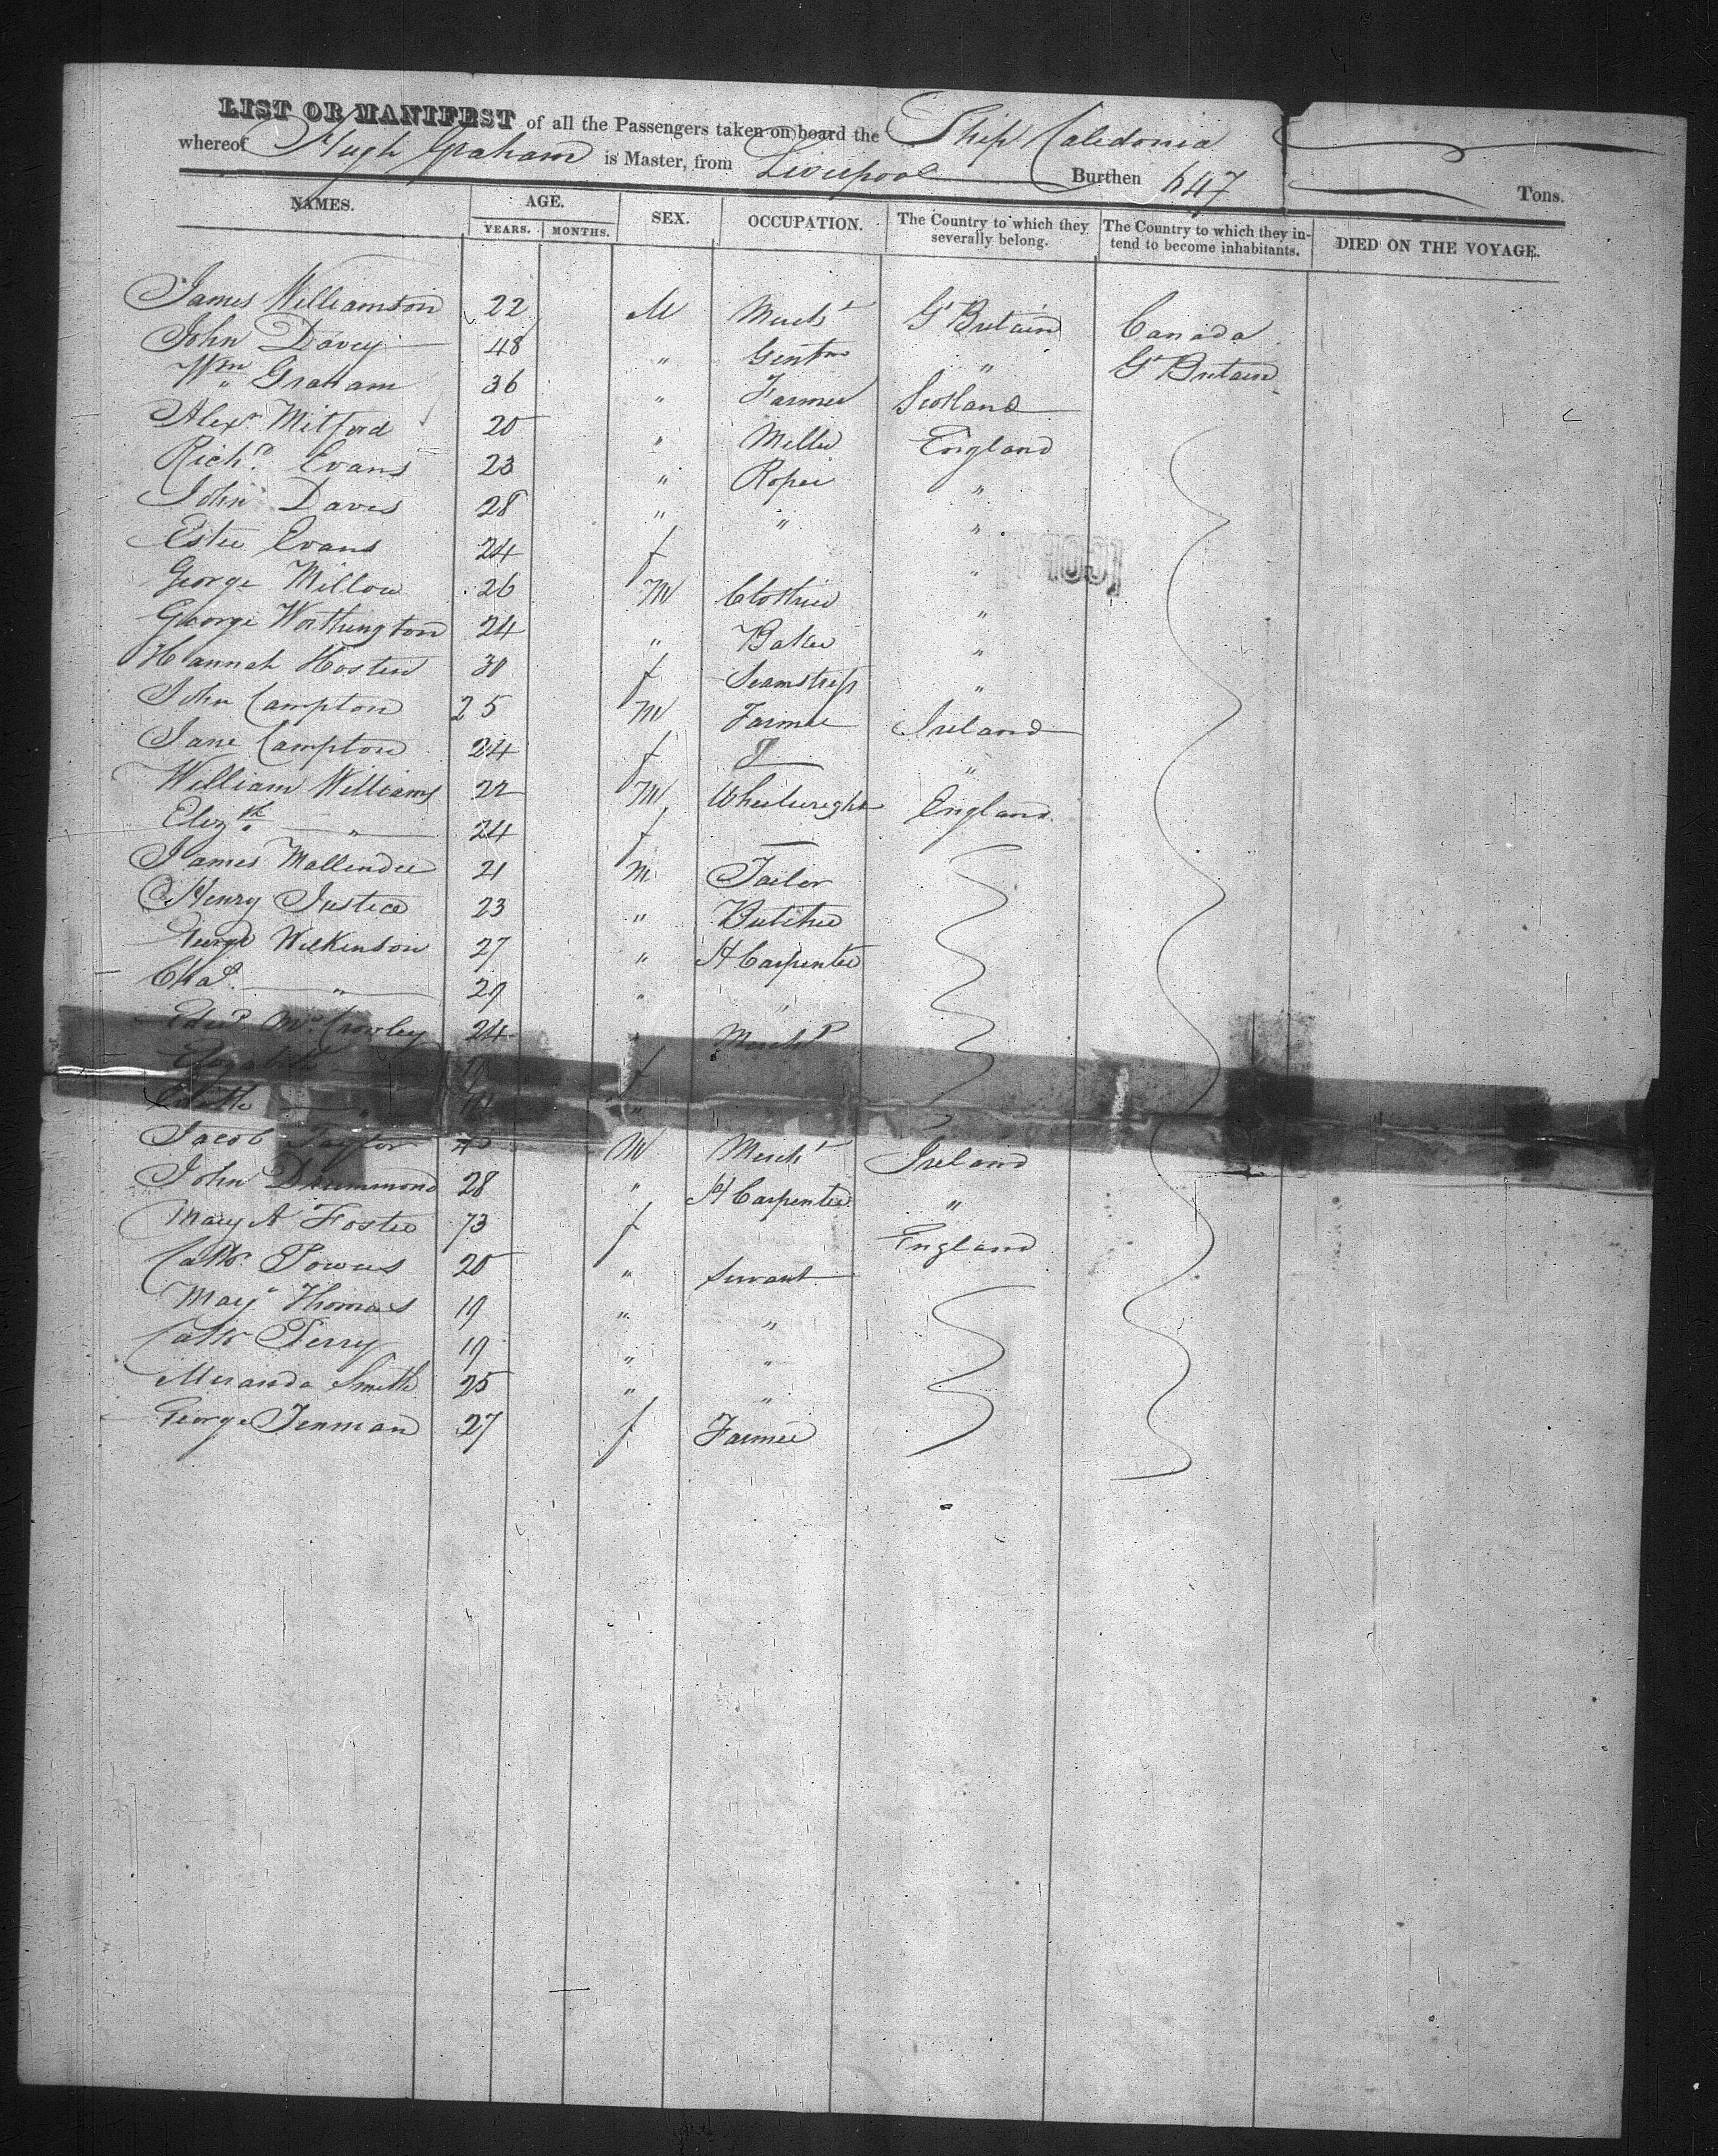 LIST OR MANIFEST of all the Passengers taken on board the Ship Caledonia
whereof Hugh Graham is Master, from Liverpool Burthen 647 Tons.
NAMES. AGE. YEARS. MONTHS. SEX. OCCUPATION. The Country to which they severally belong. The Country to which they intend to become inhabitants. DIED ON THE VOYAGE.
James Williamson 22 M Mercht Gt Britain Canada
John Davey 48 " Gentm " Gt Britain
Wm Graham 36 " Farmer Scotland
Alexr Mitford 20 " Miller England
Richd. Evans 23 " Roper "
John Davis 28 " " "
Ester Evans 24 f "
COPY
George Millow 26 M Clothier "
George Worthington 24 " Baker "
Hannah Hoster 30 f Seamstress "
John Campton 25 M Farmer Ireland
Jane Campton 24 f "
William Williams 22 M Wheelwright England
Elizth " 24 f
James Mallender 21 M Tailor
Henry Justice 23 " Butcher
George Wilkinson 27 " H Carpenter
Chas. " 29 " "
Edwd McCrowley 24 " Mercht
f
"
Jacob Taylor M Mercht Ireland
John Drummond 28 " H Carpenter "
Mary A Foster 73 f England
Cathr. Powers 20 " Servant
Mary Thomas 19 " "
Cathr Perry 19 " "
Miranda Smith 25 " "
George Tenman 27 f Farmer